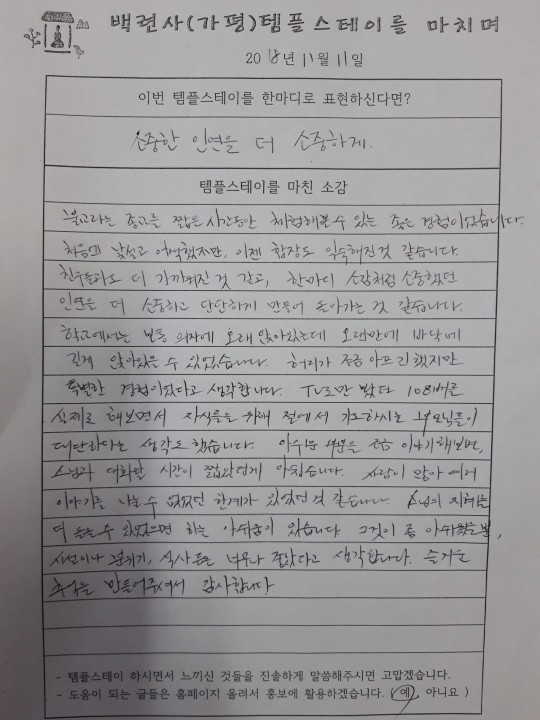 백련사(가평)템플스테이를 마치며
2018년 11월 11일
이번 템플스테이를 한마디로 표현하신다면?
소중한 인연을 더 소중하게.
템플스테이를 마친 소감
불교라는 종교를 짧은 시간동안 체험해볼 수 있는 좋은 경험이었습니다.
처음엔 낯설고 어색했지만, 이젠 합장도 익숙해진 것 같습니다.
친구들과도 더 가까워진 것 같고, 한마디 소감처럼 소중했던
인연을 더 소중하고 단단하게 만들어 돌아가는 것 같습니다.
학교에서는 보통 의자에 오래 앉아있는데 오랜만에 바닥에
길게 앉아있을 수 있었습니다. 허리가 조금 아프긴 했지만
특별한 경험이었다고 생각합니다. TV로만 봤던 108배를
실제로 해보면서 자식들을 위해 절에서 기도하시는 부모님들이
대단하다는 생각도 했습니다. 아쉬운 부분을 조금 이야기해보면,
스님과 대화할 시간이 짧았던게 아쉽습니다. 사람이 많아 여러
이야기를 나눌 수 없었던 한계가 있었던 것 같습니다. 스님의 지혜를
더 들을 수 있었으면 하는 아쉬움이 있습니다. 그것이 좀 아쉬웠을 뿐,
시설이나 분위기, 식사 등은 너무나 좋았다고 생각합니다. 즐거운
추억을 만들어주셔서 감사합니다
- 템플스테이 하시면서 느끼신 것들을 진솔하게 말씀해주시면 고맙겠습니다.
- 도움이 되는 글들은 홈페이지 올려서 홍보에 활용하겠습니다. ( 예, 아니요 )